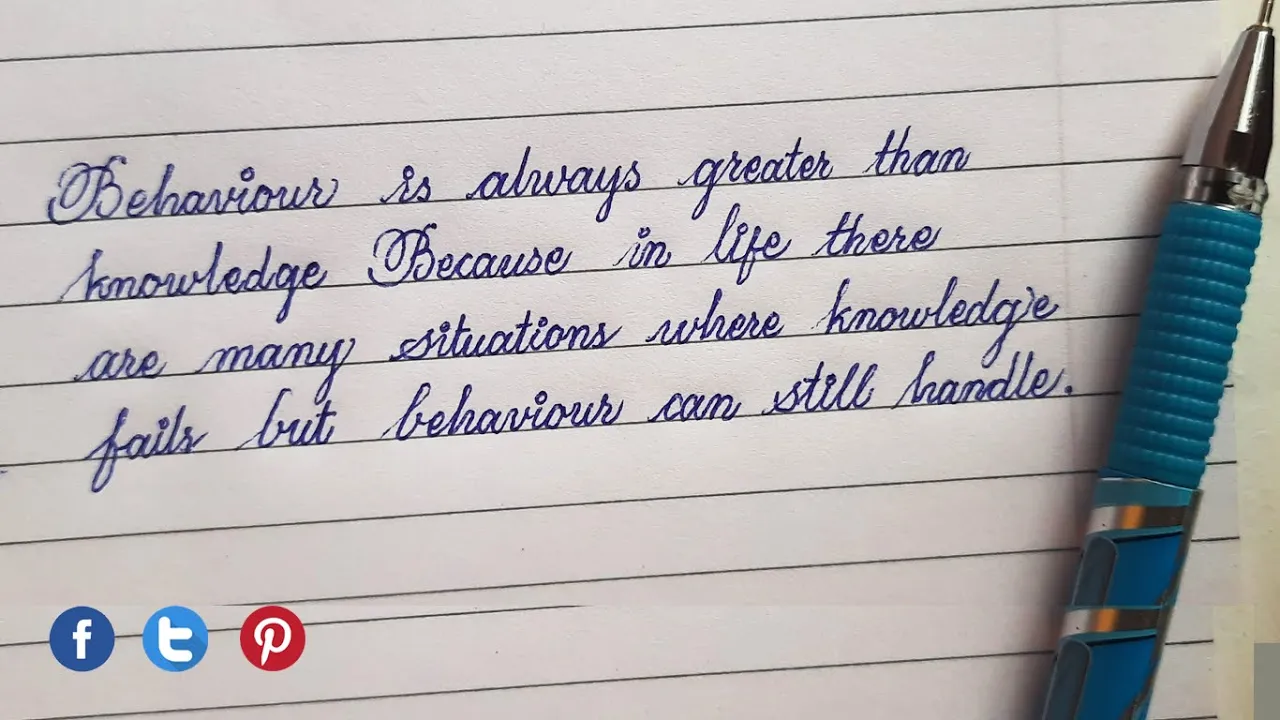 Behaviour is always greater than
knowledge Because in life there
are many situations where knowledge
fails but behaviour can still handle.